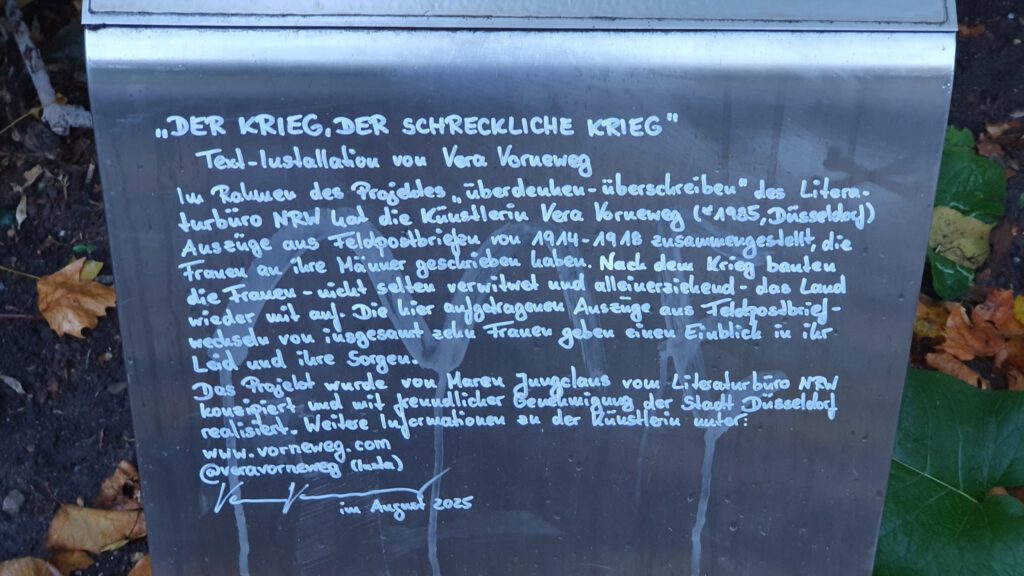 „DER KRIEG, DER SCHRECKLICHE KRIEG"
Text-Installation von Vera Vorneweg
Im Rahmen des Projektes „überdenken-überschreiben" des Litera-
turbüro NRW hat die Künstlerin Vera Vorneweg (*1985, Düsseldorf)
Auszüge aus Feldpostbriefen von 1914-1918 zusammengestellt, die
Frauen an ihre Männer geschrieben haben. Nach dem Krieg bauten
die Frauen - nicht selten verwitwet und alleinerziehend - das Land
wieder mit auf. Die hier aufgetragenen Auszüge aus Feldpostbrief-
wechseln von insgesamt zehn Frauen geben einen Einblick in ihr
Leid und ihre Sorgen.
Das Projekt wurde von Maren Jungclaus vom Literaturbüro NRW
konzipiert und mit freundlicher Genehmigung der Stadt Düsseldorf
realisiert. Weitere Informationen zu der Künstlerin unter:
www.vorneweg.com
@veravorneweg (Insta)
im August 2025